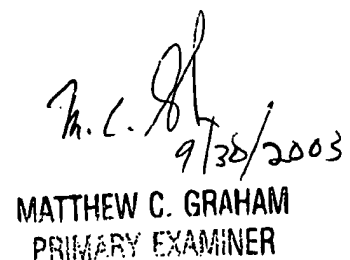 M. C. G
9/30/2003
MATTHEW C. GRAHAM
PRIMARY EXAMINER